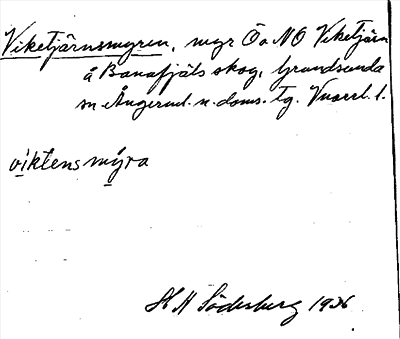 Viketjärnsmyren, myr Ö o NÖ Viketjärn
å Banafjäls skog, Grundsunda
sn Ångerml. n. doms. tg. Vnorrl. l.
viktensmýra
H N Söderberg 1936